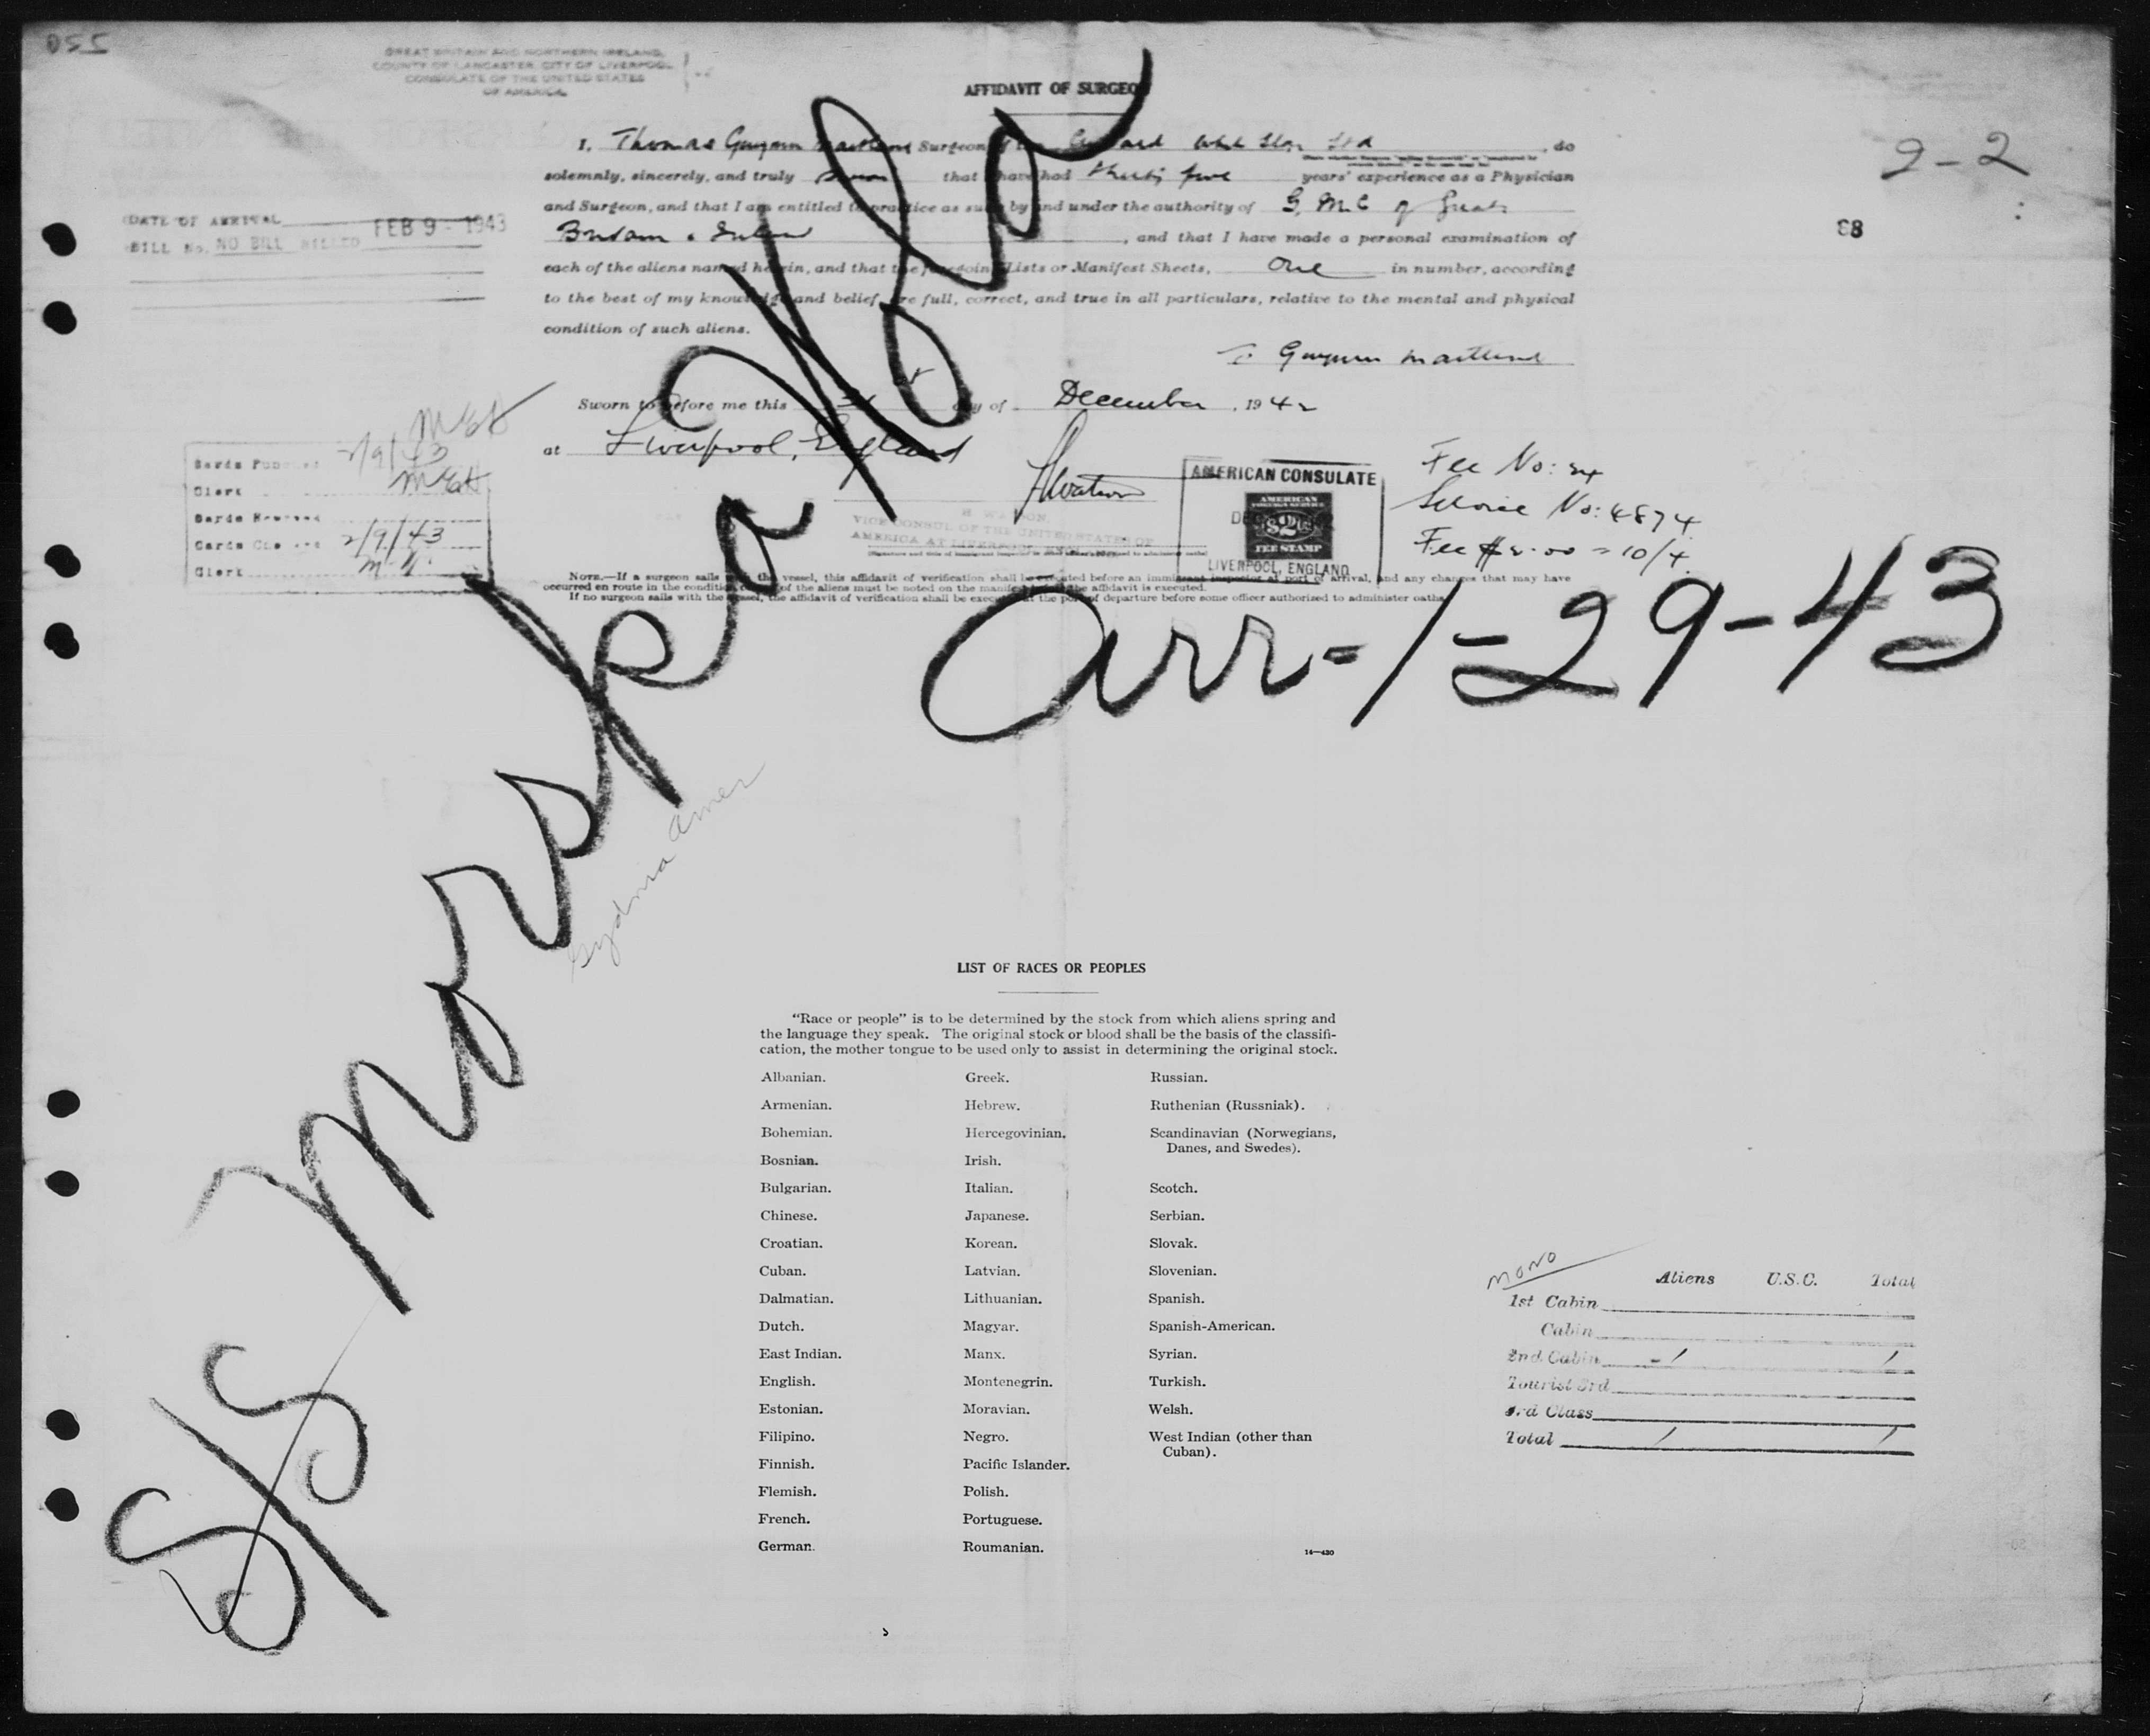 GREAT BRITAIN AND NORTHERN IRELAND,
COUNTY OF LANCASTER, CITY OF LIVERPOOL
CONSULATE OF THE UNITED STATES
OF AMERICA
AFFIDAVIT OF SURGEON
9-2
I, Thomas Gwynn Maitland Surgeon of the Cunard White Star Ltd, do
solemnly, sincerely, and truly swear that I have had thirty five years' experience as a Physician
and Surgeon, and that I am entitled to practice as such by and under the authority of G. M. C of Great
Britain & Ireland, and that I have made a personal examination of
each of the aliens named herein, and that the foregoing Lists or Manifest Sheets, One in number, according
to the best of my knowledge and belief, are full, correct, and true in all particulars, relative to the mental and physical
condition of such aliens.
DATE OF ARRIVAL FEB 9 - 1943
BILL No. NO BILL BILLED
88
T. Gwynn Maitland
Sworn to before me this day of December, 1942
at Liverpool, England
2/9/43
Clerk
2/9/43
Clerk
H. WATSON
VICE CONSUL OF THE UNITED STATES OF
AMERICA AT LIVERPOOL, ENGLAND
AMERICAN CONSULATE
AMERICAN
FOREIGN SERVICE
$2
FEE STAMP
LIVERPOOL, ENGLAND
Fee No: 24
Service No: 4874
Fee $2.00 = 10/4.
NOTE.—If a surgeon sails with the vessel, this affidavit of verification shall be executed before an immigrant inspector at port of arrival, and any changes that may have
occurred en route in the condition of the aliens must be noted on the manifest before the affidavit is executed.
If no surgeon sails with the vessel, the affidavit of verification shall be executed at the port of departure before some officer authorized to administer oaths.
S/S Morska Wola
Arr-1-29-43
Gydnia Amer
LIST OF RACES OR PEOPLES
"Race or people" is to be determined by the stock from which aliens spring and
the language they speak. The original stock or blood shall be the basis of the classifi-
cation, the mother tongue to be used only to assist in determining the original stock.
Albanian.
Armenian.
Bohemian.
Bosnian.
Bulgarian.
Chinese.
Croatian.
Cuban.
Dalmatian.
Dutch.
East Indian.
English.
Estonian.
Filipino.
Finnish.
Flemish.
French.
German.
Greek.
Hebrew.
Hercegovinian.
Irish.
Italian.
Japanese.
Korean.
Latvian.
Lithuanian.
Magyar.
Manx.
Montenegrin.
Moravian.
Negro.
Pacific Islander.
Polish.
Portuguese.
Roumanian.
Russian.
Ruthenian (Russniak).
Scandinavian (Norwegians,
Danes, and Swedes).
Scotch.
Serbian.
Slovak.
Slovenian.
Spanish.
Spanish-American.
Syrian.
Turkish.
Welsh.
West Indian (other than
Cuban).
14—430
MONO
Aliens U.S.C. Total
1st Cabin
Cabin
2nd Cabin - 1 1
Tourist 3rd
3rd Class
Total 1 1